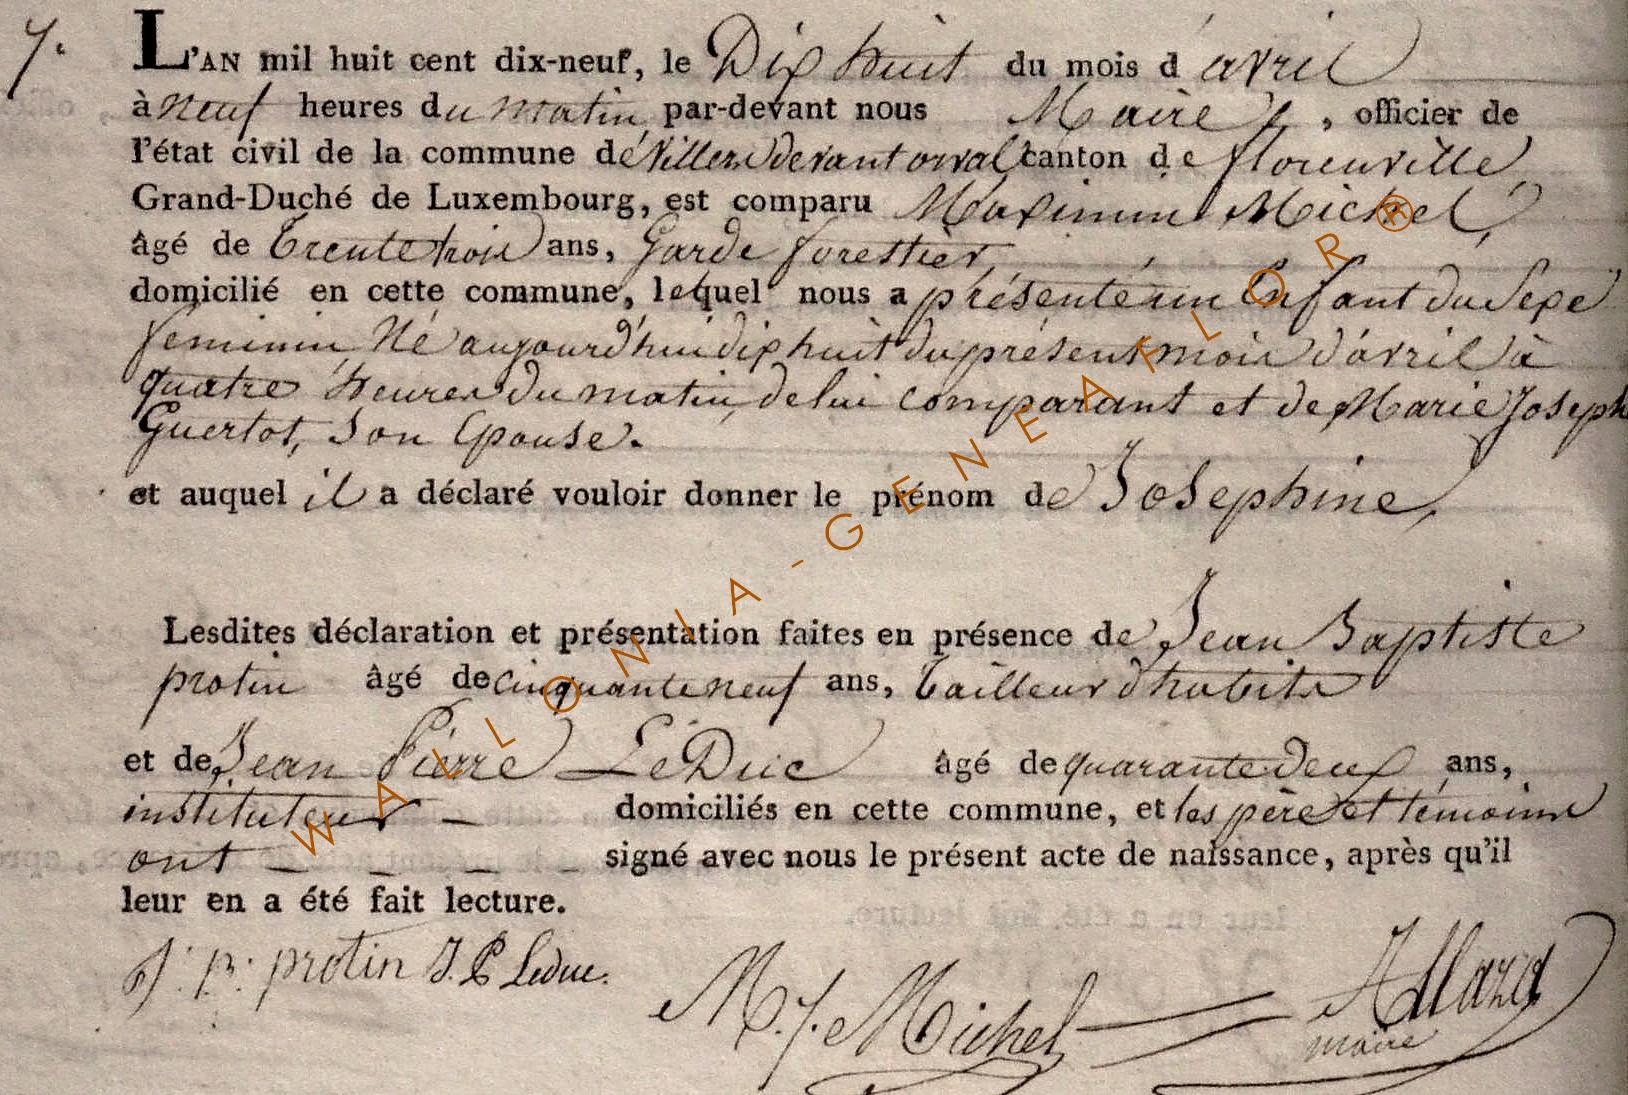 7.
L'AN mil huit cent dix-neuf, le Dix huit du mois d'avril
à neuf heures du matin, par-devant nous Maire, officier de
l'état civil de la commune de Villers devant orval canton de florenville,
Grand-Duché de Luxembourg, est comparu Maximin Michel,
âgé de Trente trois ans, Garde forestier,
domicilié en cette commune, lequel nous a présenté un Enfant du Sexe
feminin, Né aujourd'hui dix huit du présent mois d'avril à
quatre heures du matin, de lui comparant et de Marie Joseph
Guertot, Son Epouse.
et auquel il a déclaré vouloir donner le prénom de Josephine,
Lesdites déclaration et présentation faites en présence de Jean Baptiste
protin âgé de cinquante neuf ans, Tailleur d'habits
et de Jean Pierre LeDuc âgé de quarante deux ans,
instituteur domiciliés en cette commune, et les père et témoins
ont signé avec nous le présent acte de naissance, après qu'il
leur en a été fait lecture.
J. B. protin J. P. Leduc. M. J. Michel
maire
WALLONIA-GENEAFLOR®